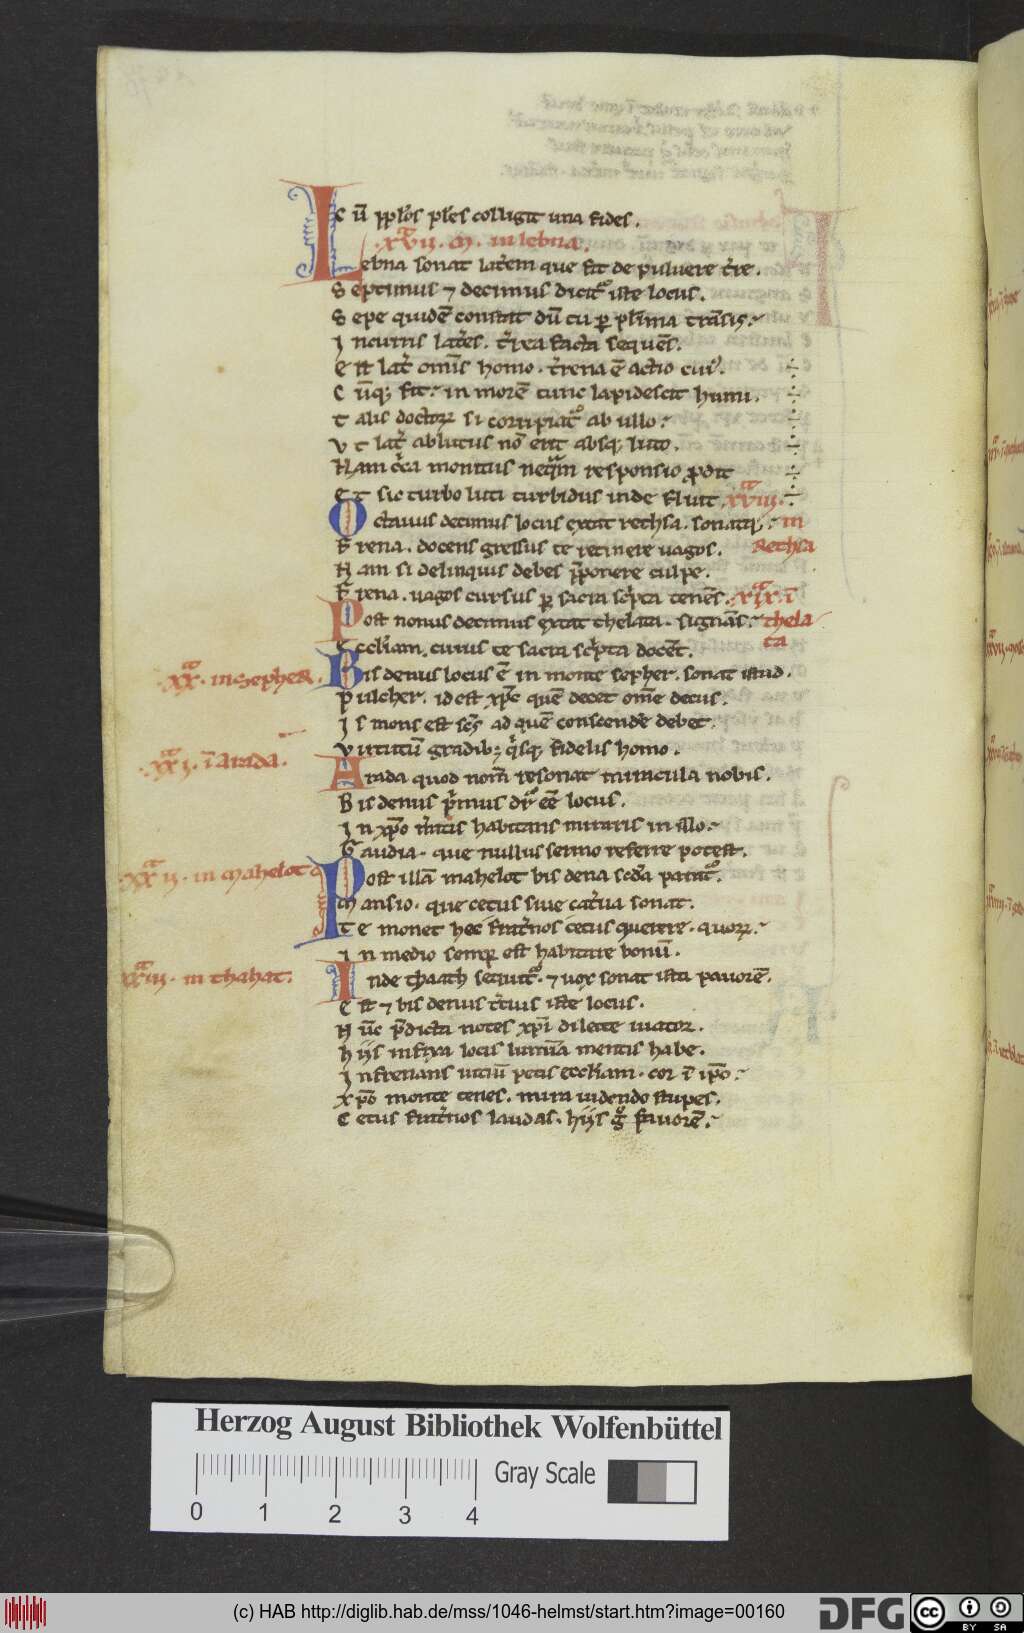 Ic ū ꝓpl̄os pl̄es colligit una fides.
.xvii. M. in lebna.
Lebna sonat lat̄em que fit de puluere t̄re.
Septimus ⁊ decimus dicit᷑ iste locus.
Sepe quidē constat dū tu ꝑ pl̄ima trāsis.
Incurris lat̄es. t̄rea facta sequēs.
Est lat̄ om̄is homo. t̄rena ē actio cui᷒.
Cūqꝫ fit in morē tunc lapidescit humi.
Talis doctoꝝ si corripiat᷑ ab ullo.
Vt lat̄ ablutus nō erit absqꝫ luto.
Nam c̄ca monitus neq̄m responsio ꝓdit
Et sic turbo luti turbidus inde fluit. xviii.
Octauus decimus locus extat rethsa. sonatqꝫ. in
Frena. docens gressus te retinere uagos. Rethsa
Nam si delinquis debes p̄ponere culpe.
Frena. uagos cursus ꝑ sacra sc̄pta tenēs. xix. ī
Post nonus decimus extat thelata. signās. thela
Eccl̄iam. cuius te sacra sc̄pta docēt. ta
.xx. in sepher.
Bis denus locus ē in monte sepher. sonat istud.
Pulcher. id est xp̄c quē decet om̄e decus.
Is mons est sc̄s ad quē conscende᷑ debet.
Virtutū gradibꝫ q̄sqꝫ fidelis homo.
.xxi. ī arada.
Arada quod nom̄ resonat miracula nobis.
Bis denus p̄mus dr̄ ēē locus.
In xp̄o m̄tis habitans miraris in illo.
Gaudia. que nullus sermo referre potest.
.xxii. in mahelot
Post illā mahelot bis dena sc̄da parit᷑.
Mansio. que cetus siue cat̄ua sonat.
Te monet hec frat̄nos cetus querere. quoꝝ.
In medio semꝑ est habitare bonū.
.xxiii. in thahat.
Inde thaath sequit᷑. ⁊ uox sonat ista pauorē.
Est ⁊ bis denus t̄cius iste locus.
Nūc p̄dicta notes xp̄i dilecte uiator.
Hiis infixa locis lumina mentis habe.
Infrenans uitiū petis eccl̄iam. cor ī ip̄o.
Xp̄o monte tenes. mira uidendo stupes.
Cetus frat̄nos laudas. hiis gͦ fauorē.
Herzog August Bibliothek Wolfenbüttel
Gray Scale
0 1 2 3 4
(c) HAB http://diglib.hab.de/mss/1046-helmst/start.htm?image=00160
DFG
cc BY SA